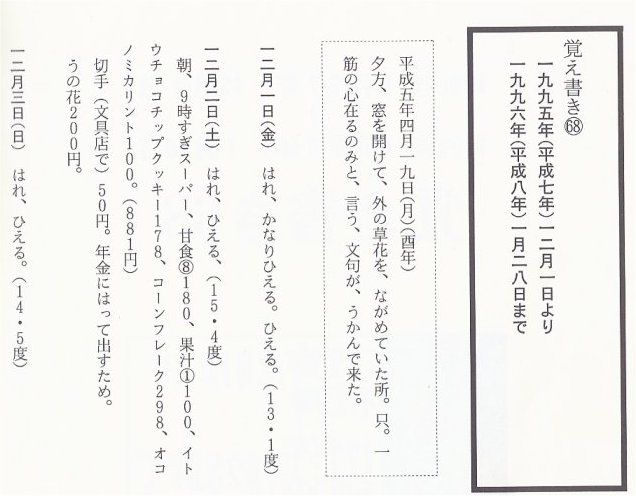 覚え書き㊽
一九九五年(平成七年)一二月一日より
一九九六年(平成八年)一月二八日まで
平成五年四月一九日(月)(酉年)
夕方、窓を開けて、外の草花を、ながめていた所。只。一
筋の心在るのみと、言う、文句が、うかんで来た。
一二月一日(金) はれ、かなりひえる。ひえる。(13・1度)
一二月二日(土) はれ、ひえる、(15・4度)
朝、9時すぎスーパー、甘食⑧180、果汁①100、イト
ウチョコチップクッキー178、コーンフレーク298、オコ
ノミカリント100。(881円)
切手(文具店で)50円。年金にはって出すため。
うの花200円。
一二月三日(日) はれ、ひえる。(14・5度)